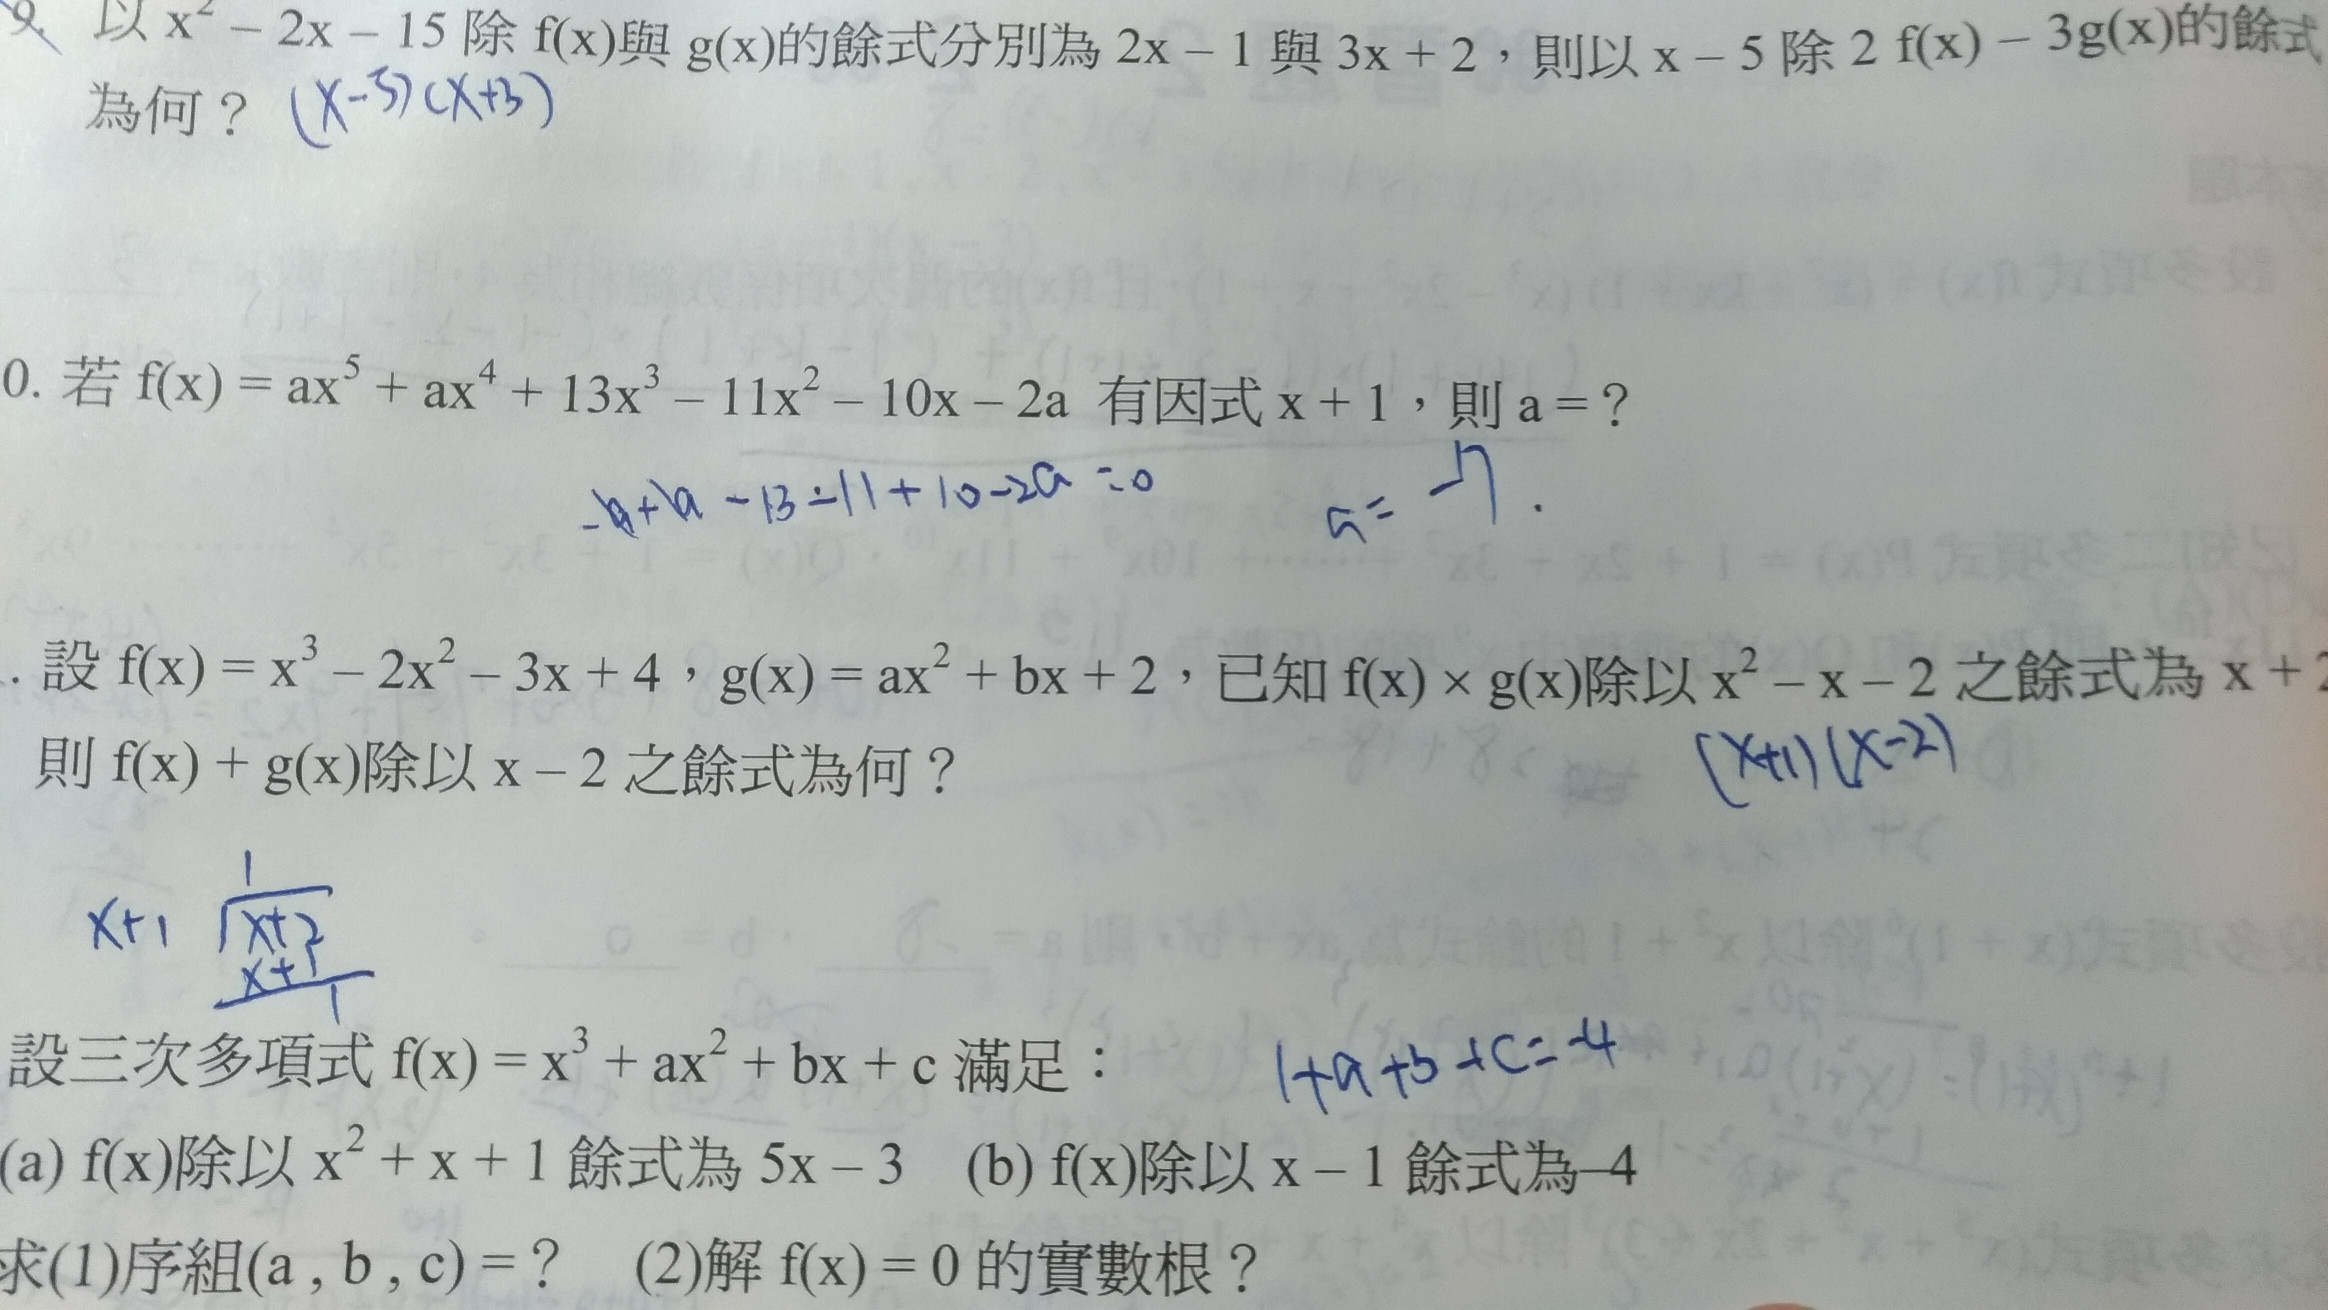 9. 以 x² – 2x – 15 除 f(x)與 g(x)的餘式分別為 2x – 1 與 3x + 2，則以 x – 5 除 2 f(x) – 3g(x)的餘式
為何？ (x-5)(x+3)
0. 若 f(x) = ax⁵ + ax⁴ + 13x³ – 11x² – 10x – 2a 有因式 x + 1，則 a = ?
-a+a-13-11+10-2a=0 a= -7.
. 設 f(x) = x³ – 2x² – 3x + 4，g(x) = ax² + bx + 2，已知 f(x) × g(x)除以 x² – x – 2 之餘式為 x + 2
則 f(x) + g(x)除以 x – 2 之餘式為何？ (x+1)(x-2)
1
x+1 x+2
x+1
1
設三次多項式 f(x) = x³ + ax² + bx + c 滿足： 1+a+b+c=-4
(a) f(x)除以 x² + x + 1 餘式為 5x – 3 (b) f(x)除以 x – 1 餘式為–4
求(1)序組(a , b , c) = ? (2)解 f(x) = 0 的實數根？